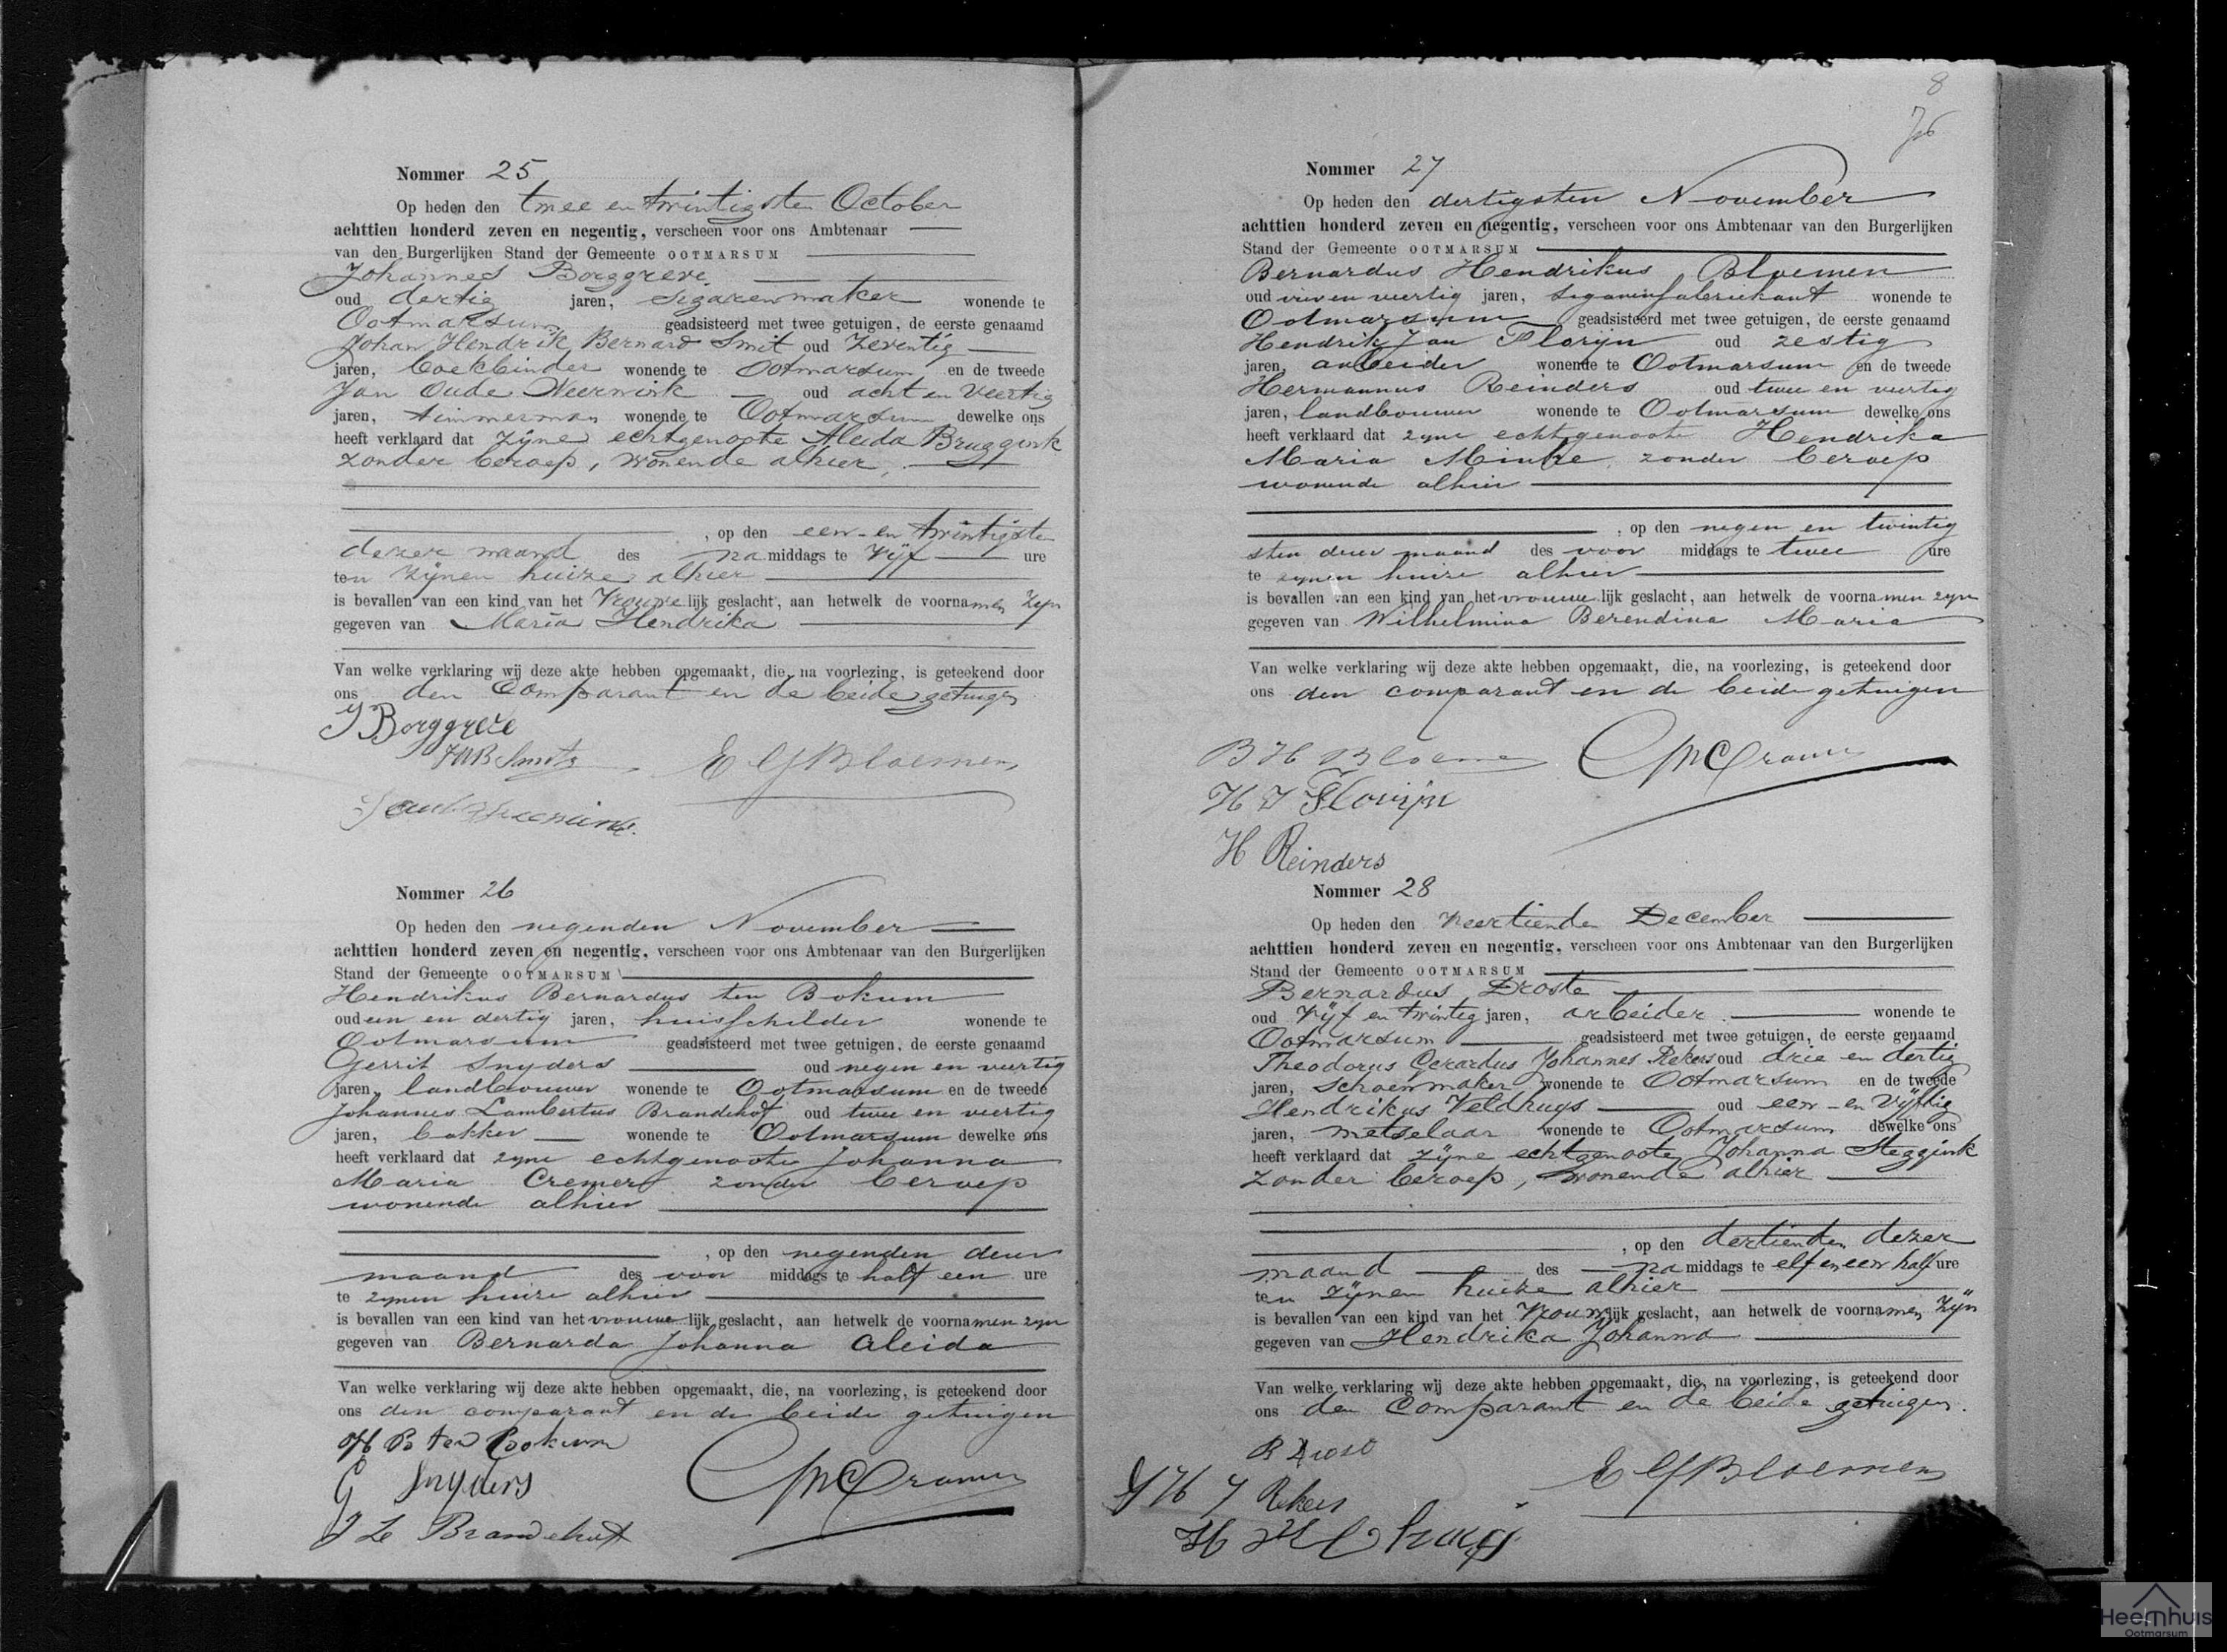 Nommer 25
Op heden den twee en twintigsten October
achttien honderd zeven en negentig, verscheen voor ons Ambtenaar
van den Burgerlijken Stand der Gemeente OOTMARSUM
Johannes Borggreve
oud dertig jaren, Sigarenmaker wonende te
Ootmarsum geadsisteerd met twee getuigen, de eerste genaamd
Johan Hendrik Bernard Smit oud zeventig
jaren, boekbinder wonende te Ootmarsum en de tweede
Jan Oude Weernink oud acht en veertig
jaren, timmerman wonende te Ootmarsum dewelke ons
heeft verklaard dat zijne echtgenoote Aleida Bruggink
zonder beroep, wonende alhier,
, op den een en twintigsten
dezer maand des na middags te vijf ure
ten zijnen huize alhier
is bevallen van een kind van het vrouwelijk geslacht, aan hetwelk de voornamen zijn
gegeven van Maria Hendrika
Van welke verklaring wij deze akte hebben opgemaakt, die, na voorlezing, is geteekend door
ons den Comparant en de beide getuigen
J Borggreve
JHB Smits
Bloemen
Nommer 26
Op heden den negenden November
achttien honderd zeven en negentig, verscheen voor ons Ambtenaar van den Burgerlijken
Stand der Gemeente OOTMARSUM
Hendrikus Bernardus ten Bokum
oud een en dertig jaren, huisschilder wonende te
Ootmarsum geadsisteerd met twee getuigen, de eerste genaamd
Gerrit Snyders oud negen en veertig
jaren, landbouwer wonende te Ootmarsum en de tweede
Johannes Lambertus Brandehof oud twee en veertig
jaren, bakker wonende te Ootmarsum dewelke ons
heeft verklaard dat zyne echtgenoote Johanna
Maria Cremers zonder beroep
wonende alhier
, op den negenden dezer
maand des voor middags te half een ure
te zynen huize alhier
is bevallen van een kind van het vrouwelijk geslacht, aan hetwelk de voornamen zyn
gegeven van Bernarda Johanna Aleida
Van welke verklaring wij deze akte hebben opgemaakt, die, na voorlezing, is geteekend door
ons den comparant en de beide getuigen
H B ten Bokum
G Snyders
J L Brandehof
Cramer
8
Nommer 27
Op heden den dertigsten November
achttien honderd zeven en negentig, verscheen voor ons Ambtenaar van den Burgerlijken
Stand der Gemeente OOTMARSUM
Bernardus Hendrikus Bloemen
oud vier en veertig jaren, sigarenfabriekant wonende te
Ootmarsum geadsisteerd met twee getuigen, de eerste genaamd
Hendrik Jan Floryn oud zestig
jaren, arbeider wonende te Ootmarsum en de tweede
Hermannus Reinders oud twee en veertig
jaren, landbouwer wonende te Ootmarsum dewelke ons
heeft verklaard dat zyne echtgenoote Hendrika
Maria zonder beroep
wonende alhier
, op den negen en twintig
sten dezer maand des voor middags te twee ure
te zynen huize alhier
is bevallen van een kind van het vrouwelijk geslacht, aan hetwelk de voornamen zyn
gegeven van Wilhelmina Berendina Maria
Van welke verklaring wij deze akte hebben opgemaakt, die, na voorlezing, is geteekend door
ons den comparant en de beide getuigen
B H Bloemen
Cramer
H J Florijn
H Reinders
Nommer 28
Op heden den veertienden December
achttien honderd zeven en negentig, verscheen voor ons Ambtenaar van den Burgerlijken
Stand der Gemeente OOTMARSUM
Bernardus Droste
oud vijf en twintig jaren, arbeider wonende te
Ootmarsum geadsisteerd met twee getuigen, de eerste genaamd
Theodorus Gerardus Johannes Rekers oud drie en dertig
jaren, schoenmaker wonende te Ootmarsum en de tweede
Hendrikus Veldhuys oud een en vijftig
jaren, metselaar wonende te Ootmarsum dewelke ons
heeft verklaard dat zijne echtgenoote Johanna Steggink
zonder beroep, wonende alhier
, op den dertienden dezer
maand des na middags te elf en een half ure
ten zijnen huize alhier
is bevallen van een kind van het vrouwelijk geslacht, aan hetwelk de voornamen zijn
gegeven van Hendrika Johanna
Van welke verklaring wij deze akte hebben opgemaakt, die, na voorlezing, is geteekend door
ons den Comparant en de beide getuigen.
B Drost
Rekers
Bloemen
Heemhuis
Ootmarsum